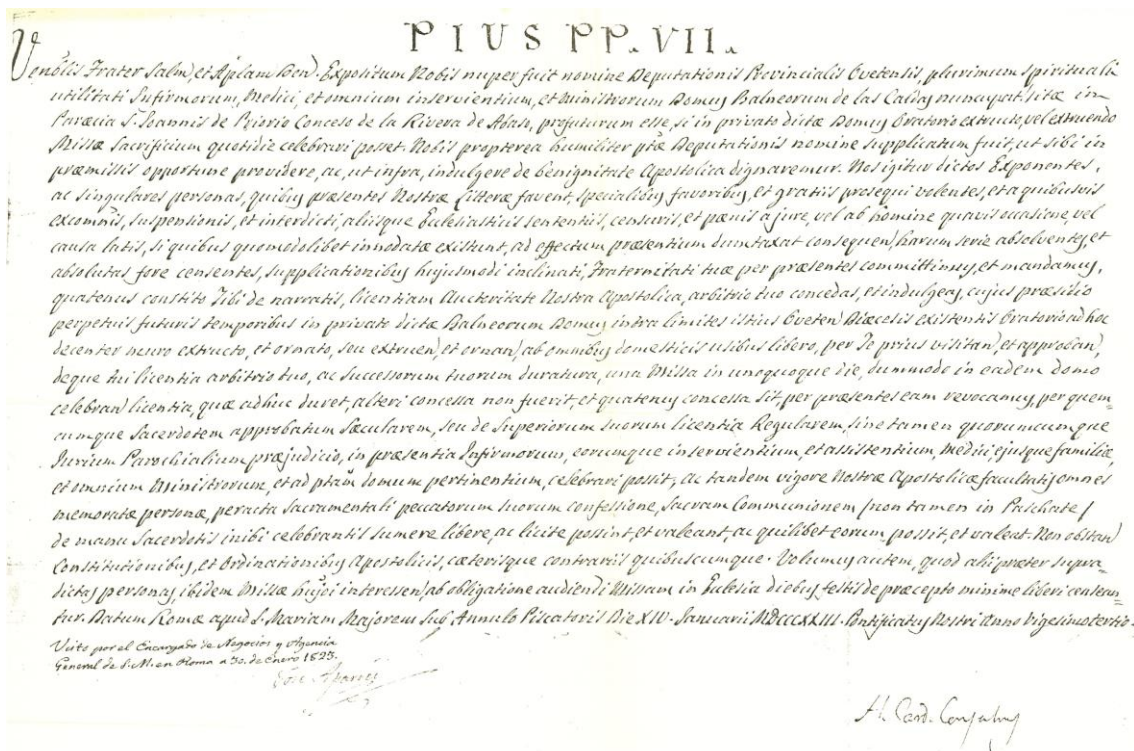 PIUS PP. VII.
Venblis Frater Salm, et Aplam Ben. Expositum Nobis nuper fuit nomine Deputationis Provincialis Ovetensis, plurimum spirituali
utilitati Infirmorum, Medici, et omnium inservientium, et Ministrorum Domus Balneorum de las Caldas nuncupat. sitæ in
Paræcia S. Joannis de Priorio Concejo de la Rivera de Abajo, profuturum esse, si in privato dictæ Domus Oratorio extructo, vel extruendo
Missæ Sacrificium quotidie celebrari posset. Nobis propterea humiliter ptæ Deputationis nomine supplicatum fuit, ut sibi in
præmissis opportune providere, ac, ut infra, indulgere de benignitate Apostolica dignaremur. Nos igitur dictos Exponentes,
ac singulares personas, quibus præsentes Nostræ Litteræ favent, specialibus favoribus, et gratiis prosequi volentes, et a quibusvis
excomnis, suspensionis, et interdicti, aliisque Eclesiasticis sententiis, censuris, et pænis a jure, vel ab homine quavis occasione, vel
causa latis, si quibus quomodolibet innodatæ existunt, ad effectum præsentium dumtaxat consequen, harum serie absolventes, et
absolutas fore censentes, supplicationibus hujusmodi inclinati, Fraternitati tuæ per præsentes committimus, et mandamus,
quatenus constito Tibi de narratis, licentiam Auctoritate Nostra Apostolica, arbitrio tuo concedas, et indulgeas, cujus præsidio
perpetuis futuris temporibus in privato dictæ Balneorum Domus intra limites istius Oveten Diæcesis existentis Oratorio ad hoc
decenter muro extructo, et ornato, seu extruen, et ornan, ab omnibus domesticis usibus libero, per Te prius visitan, et approban,
deque tui licentia arbitrio tuo, ac successorum tuorum duratura, una Missa in unoquoque die, dummodo in eadem domo
celebran licentia, quæ adhuc duret, alteri concessa non fuerit, et quatenus concessa sit, per præsentes eam revocamus, per quem-
cumque Sacerdotem approbatum Sæcularem, seu de Superiorum suorum licentia Regularem, sine tamen quorumcumque
Jurium Parochialium præjudicio, in præsentia Infirmorum, eorumque inservientium, et assistentium, Medici, ejusque familiæ,
et omnium Ministrorum, et ad ptam domum pertinentium, celebrari possit; Ac tandem vigore Nostræ Apostolicæ facultatis omnes
memoratæ personæ, peracta Sacramentali peccatorum suorum confessione, Sacram Communionem / non tamen in Paschate /
de manu Sacerdotis inibi celebrantis sumere libere, ac licite possint, et valeant, ac quilibet eorum possit, et valeat. Non obstan
Constitutionibus, et Ordinationibus Apostolicis, cæterisque contrariis quibuscumque. Volumus autem, quod alii præter supra-
dictas personas, ibidem Missæ hujoi interessen, ab obligatione audiendi Missam in Eclesia diebus festis de præcepto minime liberi censean-
tur. Datum Romæ apud S. Mariam Majorem Sub Annulo Piscatoris Die XIV. Januarii MDCCCXXIII. Pontificatus Nostri Anno Vigesimotertio.
Visto por el Encargado de Negocios y Agencia
General de S. M. en Roma a 30. de Enero 1823.
José Aparici
H. Card. Consalvi